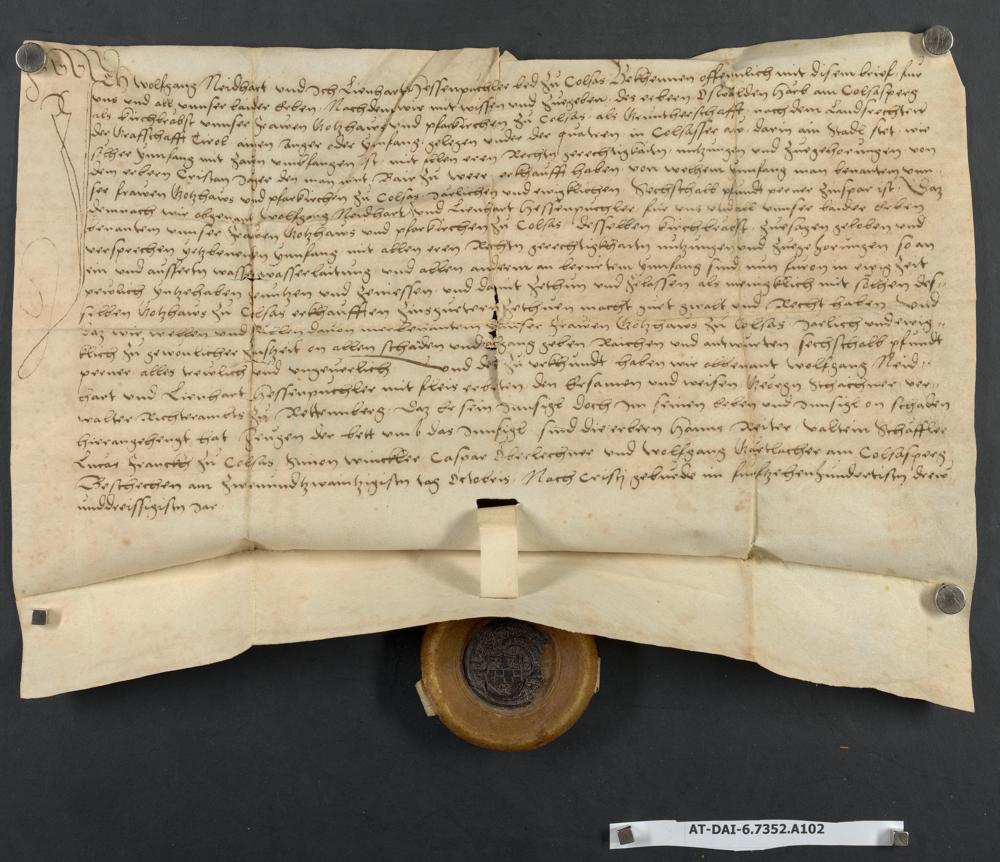 Ich Wolfgang Neidhart und Ich Lienhart Hessenpuchler bed zu Colsas Bekhennen offennlich mit disem brief, fur
uns und all unnser baider Erben. Nachdem wir mit wissen und zuegeben, des erbern Oswalden Härb am Colsasperg
als kirchbrobst unnser Frawen Gotzhaws und pfarkirchen zu Colsas, als Grundtherschafft, nach dem Landsrechten
der Grafschafft Tirol ainen Anger oder Ynnfang, gelegen under der quateen, in Colsasser aw, darin ain Stadl stet, wie
solher Ynnfang mit Zäun umbfangen ist, mit allen eren Rechten gerechtigkaiten, nutzungen und Zuegehorungen, von
dem erbern Cristan Jäger den man nent Bair zu Weer, erkhaufft haben, von welhem Ynnfang man benannten unn-
ser frawen Gotzhaws und pfarkirchen zu Colsas Järlichen und ewigklichen, Sechsthalb pfundt perner Zinspar ist, Daz
demnach wir obgenant Wolfgang Neidhart und Lienhart Hessenpuchler, fur uns und all unnser baider Erben
benantem unnser Frawen Gotzhaws und pfarkirchen zu Colsas, desselben kirchbrobst, zuesagen geloben und
versprechen yetzbenenten Ynnfang mit allen eren Rechten gerechtigkhaiten nutzungen und Zuegehorungen, so an
ein und ausfertn wasser wasserlaitung, und allen anderm an beruertem Ynnfang sind nun furon in ewig Zeit
pewlich Ynntzehaben zenutzen und zeniessen, und damit zethun und zelassen als menigklich mit solhen des-
selben Gotzhaws zu Colsas erkhaufften Zinsguetern zethuen macht guet gwalt und Recht haben, und
daz wir wellen und sullen davon merbenantem unnser Frawen Gotzhaws zu Colsas, Järlich und ewig-
klich zu gewondlicher Zinszeit on allen schaden und abgang geben Raichen und antwurten sechsthalb pfundt
perner alles trewlich und ungeverlich und des zu urkhundt haben wir obbenant Wolfgang Neid-
hart und Lienhart Hessenpuchler mit fleis erbeten, den Ersamen und weisen Georgn Schachner ver-
walter Richterambts zu Rettennberg, Daz Er sein Innsigl doch Im seinen Erben und Innsigl on schaden
hieran gehengt hat, Zeugen der bett umb das Innsigl, sind die erbern Hanns Reiter, Valtein Schäffler
Lucas Franckh zu Colsas, Simon Winckler Caspar Oberlechner und Wolfgang Gartlacher am Colsasperg
Beschechen am Zwenundtzwaintzigisten tag Octobris, Nach Cristi gebuerde im funfftzehenhundertisten drew
unddreissigisten Jar
AT-DAI-6.7352.A102